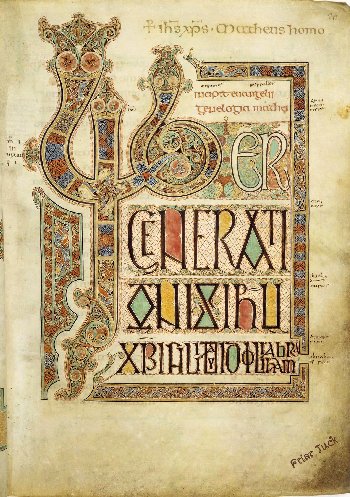 + ihs xps · Mattheus homo
incipit euangelii
genelogia mathei
LIBER
GENERATI
ONIS IHU
XPI FILII DAUID FILII ABRAHAM
Friar Tuck